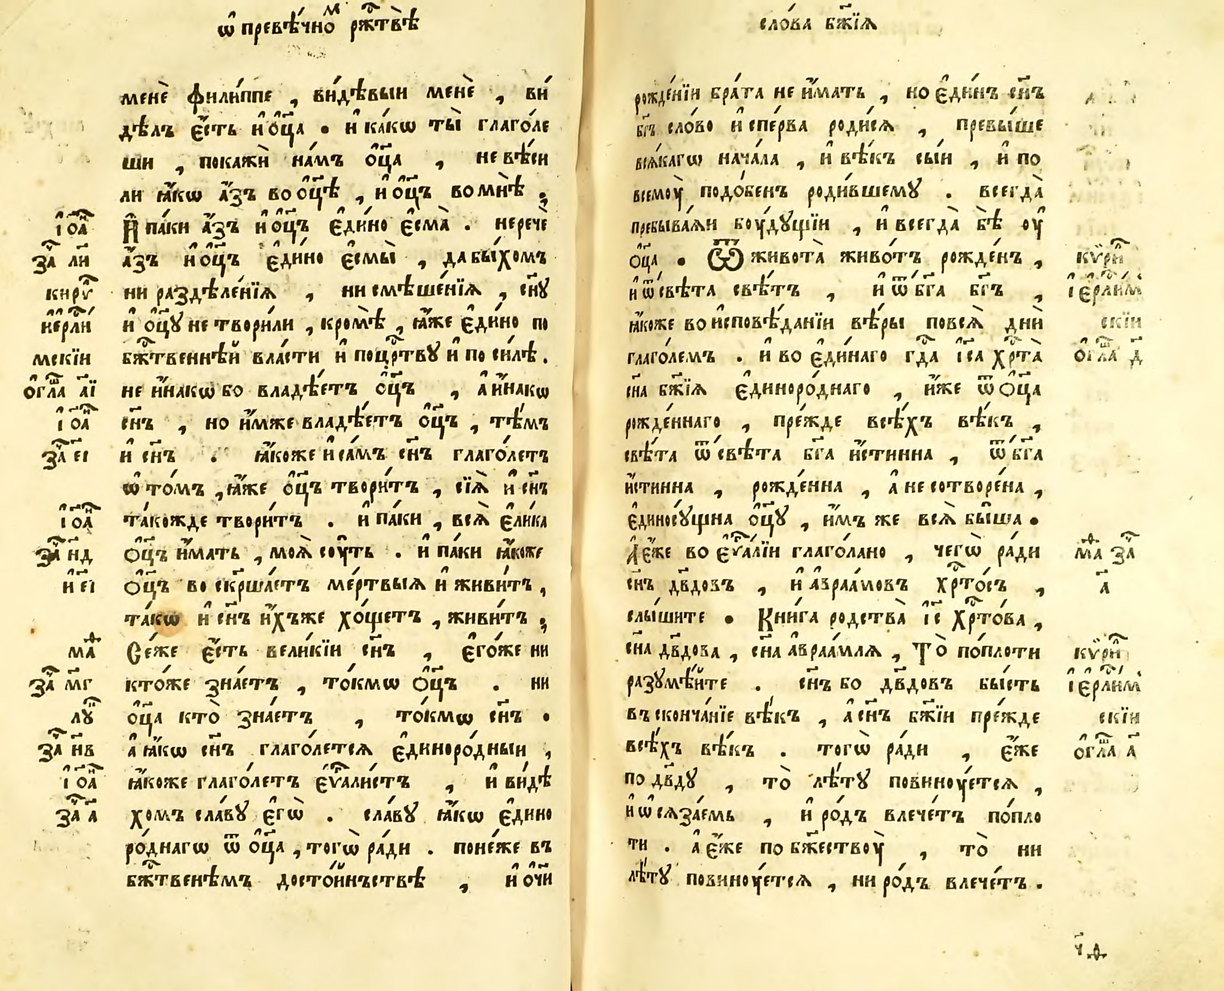 ѿ превѣ́чноⷨ рж҇твѣ̀
менѐ фили́ппе , ви́дѣвыи менѐ , ви́
дѣлъ є҆́сть и҆ ѻ҆ц҃а . и҆ ка́кѡ ты̀ глаго́ле
ши , покажѝ на́мъ ѻ҆ц҃а , не вѣ́си
ли ꙗ҆́кѡ а҆́зъ во ѻ҆ц҃ѣ , и҆ ѻ҆ц҃ъ во мнѣ̀ ;
И҆ па́ки а҆́зъ и҆ ѻ҆ц҃ъ є҆ди́но є҆сма̀ . не речѐ
а҆́зъ и҆ ѻ҆ц҃ъ є҆ди́но є҆смы̀ , да бы́хомъ
ни раздѣле́нїѧ , ни смѣше́нїѧ , сн҃ꙋ
и҆ ѻ҆ц҃ꙋ не твори́ли , кромѣ̀ , ꙗ҆́же є҆ди́но по
бж҇твеннѣ́й вла́сти и҆ по цр҇твꙋ и҆ по си́лѣ .
не и҆́накѡ бо владѣ́етъ ѻ҆ц҃ъ , а҆ и҆́накѡ
сн҃ъ , но и҆́мже владѣ́етъ ѻ҆ц҃ъ , тѣ́мъ
и҆ сн҃ъ . ꙗ҆́коже и҆ са́мъ сн҃ъ глаго́летъ
ѡ҆ то́мъ , ꙗ҆́же ѻ҆ц҃ъ твори́тъ , сїѧ̀ и҆ сн҃ъ
та́кожде твори́тъ . и҆ па́ки , всѧ̀ є҆ли́ка
ѻ҆ц҃ъ и҆́мать , моѧ̀ сꙋ́ть . и҆ па́ки ꙗ҆́коже
ѻ҆ц҃ъ воскрⷭ҇ша́етъ ме́ртвыѧ и҆ живи́тъ ,
та́кѡ и҆ сн҃ъ и҆́хъже хо́щетъ , живи́тъ ;
Се́же є҆́сть вели́кїи сн҃ъ , є҆го́же ни
кто́же зна́етъ , то́кмѡ ѻ҆ц҃ъ . ни
ѻ҆ц҃а кто̀ зна́етъ , то́кмѡ сн҃ъ .
а҆ ꙗ҆́кѡ сн҃ъ глаго́летсѧ є҆диноро́дныи ,
ꙗ҆́коже глаго́летъ є҆ѵⷢ҇али́стъ , и҆ ви́дѣ
хомъ сла́вꙋ є҆гѡ̀ . сла́вꙋ ꙗ҆́кѡ є҆дино
ро́днагѡ ѿ ѻ҆ц҃а , тогѡ̀ ра́ди . поне́же въ
бж҇твенѣмъ досто́инъствѣ , и҆ ѻ҆́чи
і҆ѡа҇
за҇ л҃и
кирꙋ҇
и҆ерли҇
мскїи
ѻ҆гла҇ а҃і
і҆ѡа҇
за҇ є҃і
і҆ѡа҇
за҇ н҃д
и҆ є҃і
маⷴ
за҇ м҃г
лꙋ҇
за҇ н҃в
і҆ѡа҇
за҇ а҃
сло́ва бж҃їѧ
рожде́нїи бра́та не и҆́мать , но є҆ди́нъ сн҃ъ
бг҃ъ сло́во и҆ спе́рва роди́сѧ , превы́ше
всѧ́кагѡ нача́ла , и҆ вѣ́къ сы́и , и҆ по
всемꙋ̀ подо́бенъ роди́вшемꙋ . всегда̀
пребыва́ѧи бꙋ́дꙋщїи , и҆ всегда̀ бѣ̀ ᲂу҆
ѻ҆ц҃а . Ѿ живота̀ живо́тъ рожде́нъ ,
и҆ ѿ свѣ́та свѣ́тъ , и҆ ѿ бг҃а бг҃ъ ,
ꙗ҆́коже во и҆сповѣ́данїи вѣ́ры повсѧ̀ днѝ
глаго́лемъ . и҆ во є҆ди́наго гд҇а і҆с҃а хр҇та̀
сн҃а бж҃їѧ є҆диноро́днаго , и҆́же ѿ ѻ҆ц҃а
рожде́ннаго , пре́жде всѣ́хъ вѣ́къ ,
свѣ́та ѿ свѣ́та бг҃а и҆́стинна , ѿ бг҃а
и҆́стинна , рожде́нна , а҆ не сотворе́на ,
є҆диносꙋ́щна ѻ҆ц҃ꙋ , и҆́мъ же всѧ̀ бы́ша .
А҆ є҆́же во є҆ѵⷢ҇а́лїи глаго́лано , чегѡ̀ ра́ди
сн҃ъ дв҃довъ , и҆ а҆враа́мовъ хр҇то́съ ,
слы́шите . Кни́га родства̀ і҆с҃ хр҇то́ва ,
сн҃а дв҃дова , сн҃а а҆враа́млѧ , То̀ по пло́ти
разꙋмѣ́йте . сн҃ъ бо дв҃довъ бы́сть
въ сконча́нїе вѣ́къ , а҆ сн҃ъ бж҃їи пре́жде
всѣ́хъ вѣ́къ . тогѡ̀ ра́ди , є҆́же
по дв҃дꙋ , то̀ лѣ́тꙋ повинꙋ́етсѧ ,
и҆ ѡ҆сѧза́емь , и҆ ро́дъ влече́тъ по пло
ти . а҆ є҆́же по бж҃ествꙋ̀ , то̀ ни
лѣ́тꙋ повинꙋ́етсѧ , ни ро́дъ влече́тъ .
кѵри҇
і҆єр҇лим
скїи
ѻ҆гла҇ д҃
маⷴ за҇
а҃
кѵри҇
і҆єр҇лим
скїи
ѻ҆гла҇ а҃